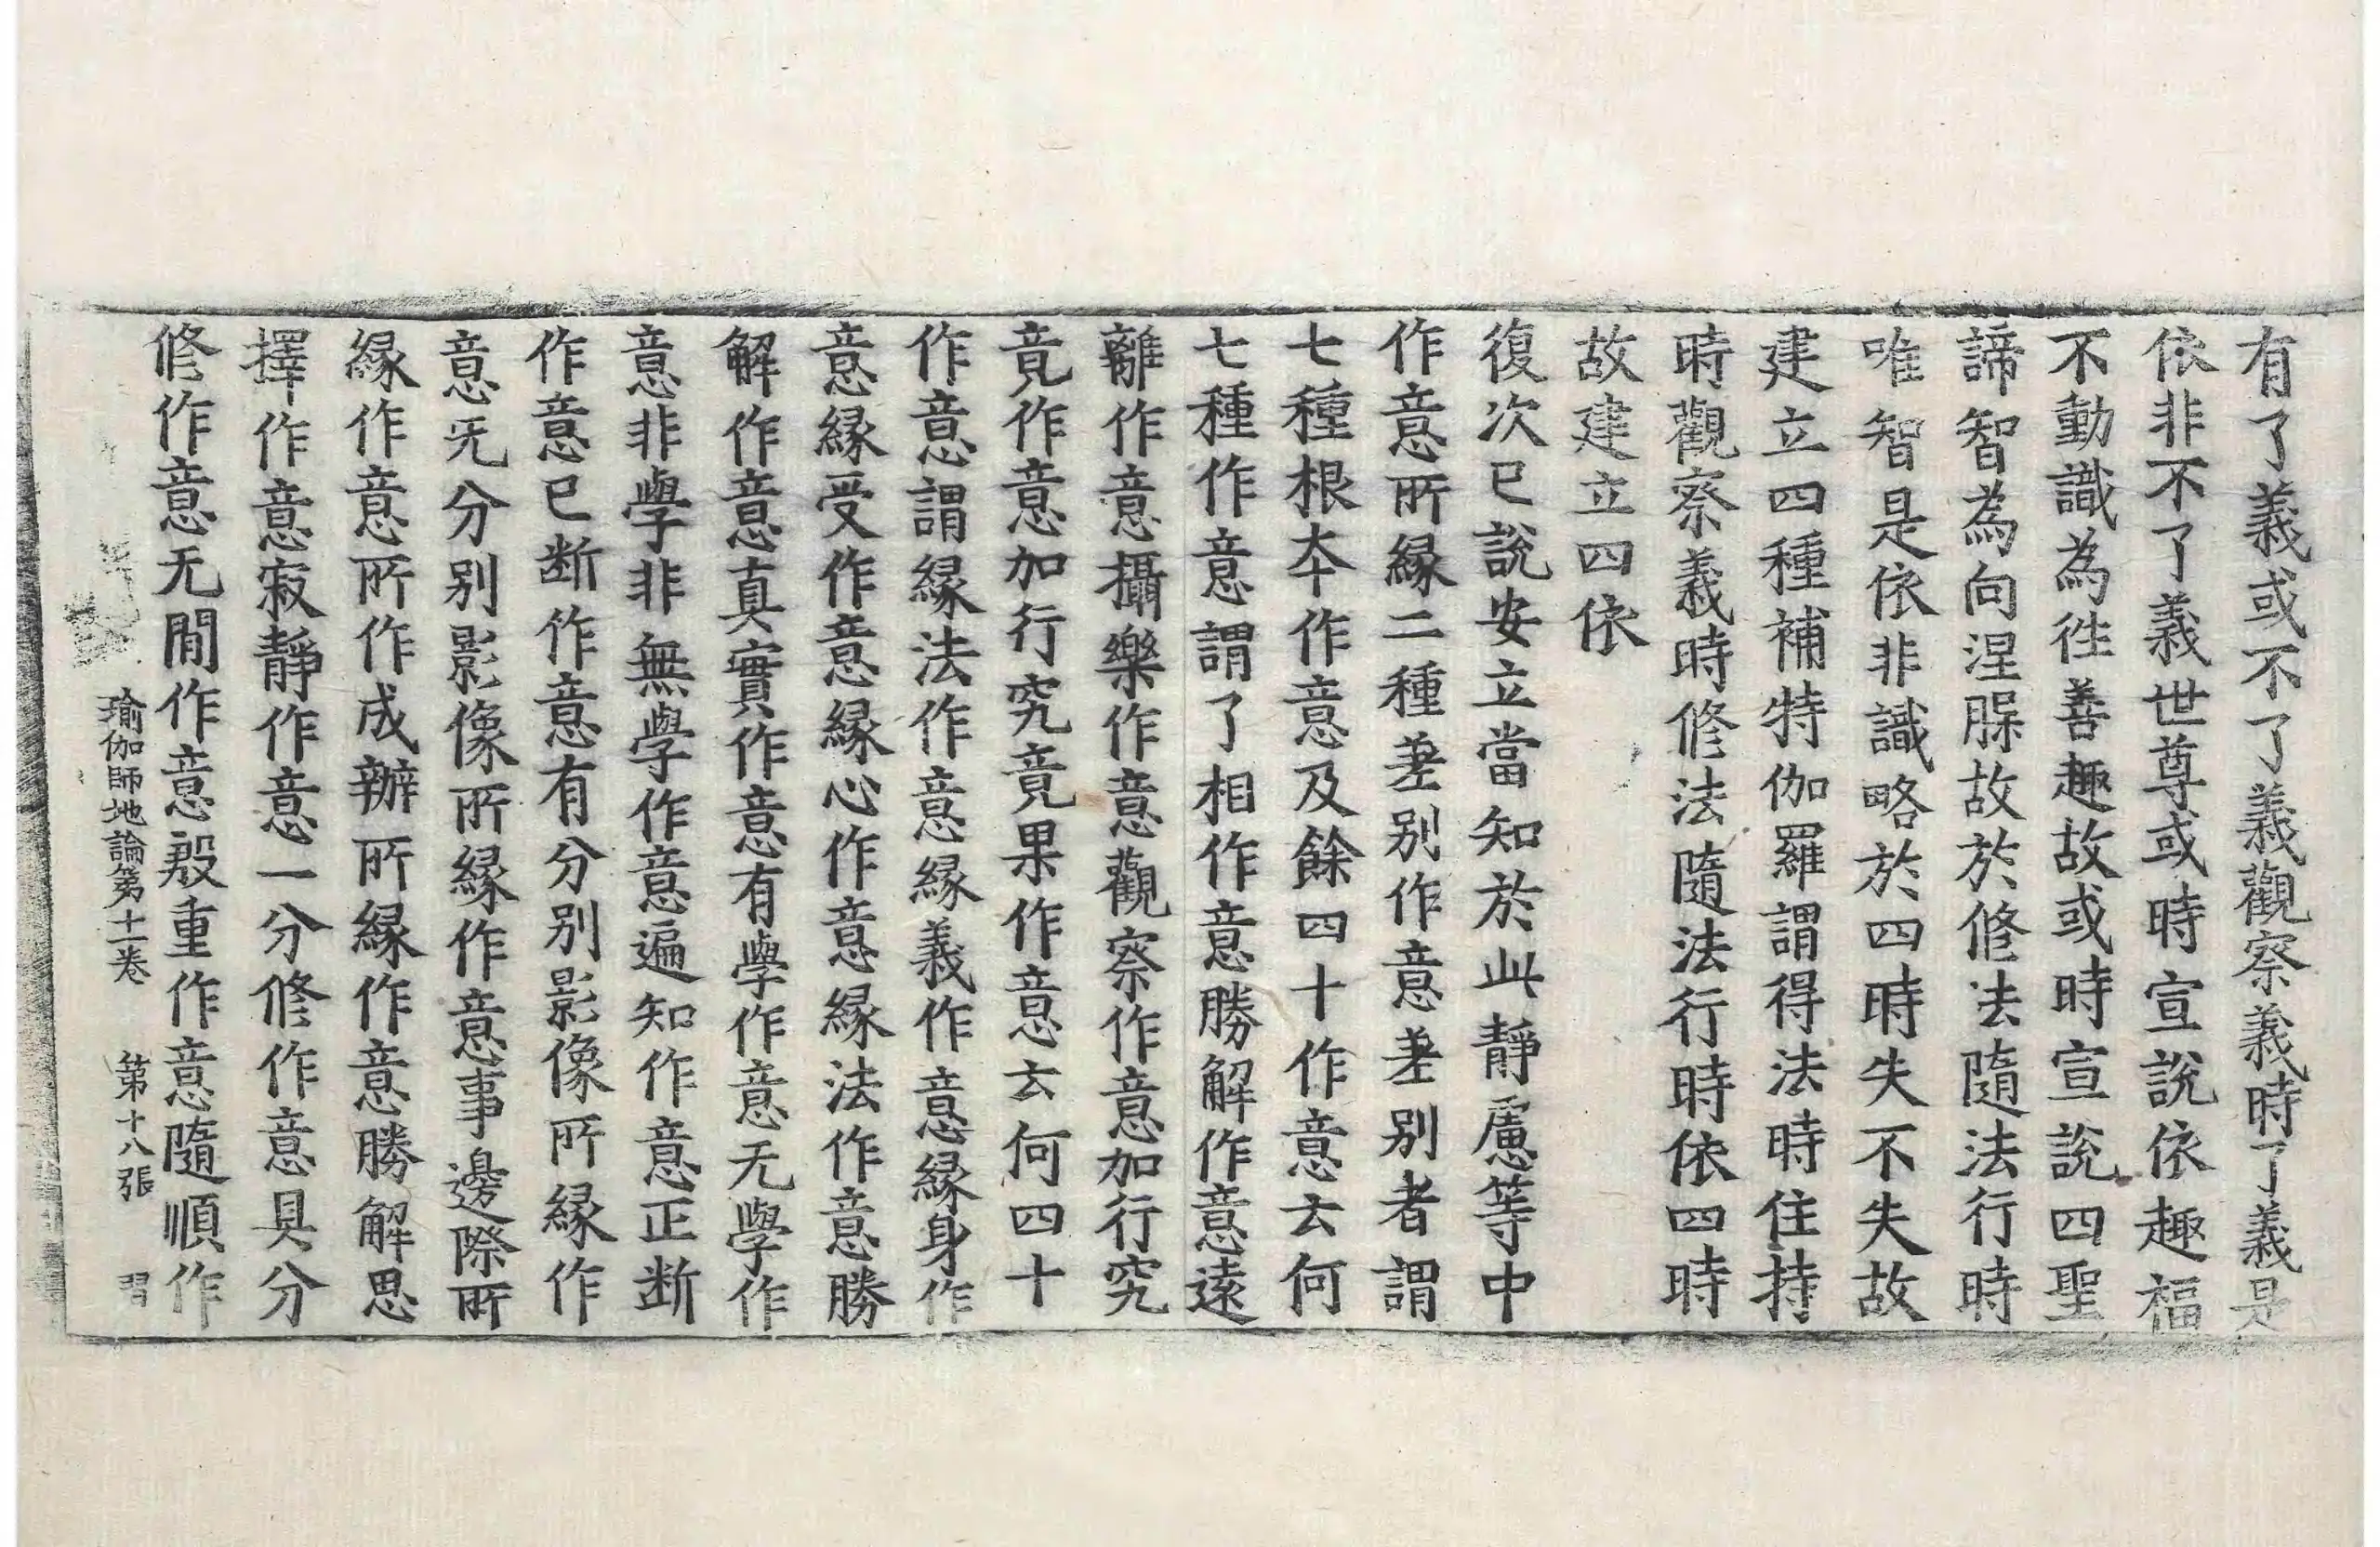 有了義或不了義觀察義時了義是
依非不了義世尊或時宣說依趣福
不動識為徃善趣故或時宣說四聖
諦智為向涅槃故於修法隨法行時
唯智是依非識略於四時失不失故
建立四種補特伽羅謂得法時住持
時觀察義時修法隨法行時依四時
故建立四依
復次已說安立當知於此靜慮等中
作意所緣二種差別作意差別者謂
七種根夲作意及餘四十作意云何
七種作意謂了相作意勝解作意遠
離作意攝樂作意觀察作意加行究
竟作意加行究竟果作意云何四十
作意謂緣法作意緣義作意緣身作
意緣受作意緣心作意緣法作意勝
解作意真實作意有學作意无學作
意非學非無學作意遍知作意正断
作意已断作意有分別影像所緣作
意无分別影像所緣作意事邊際所
緣作意所作成辦所緣作意勝解思
擇作意寂靜作意一分修作意具分
修作意无閒作意殷重作意隨順作
瑜伽師地論第十一卷 第十八張 習